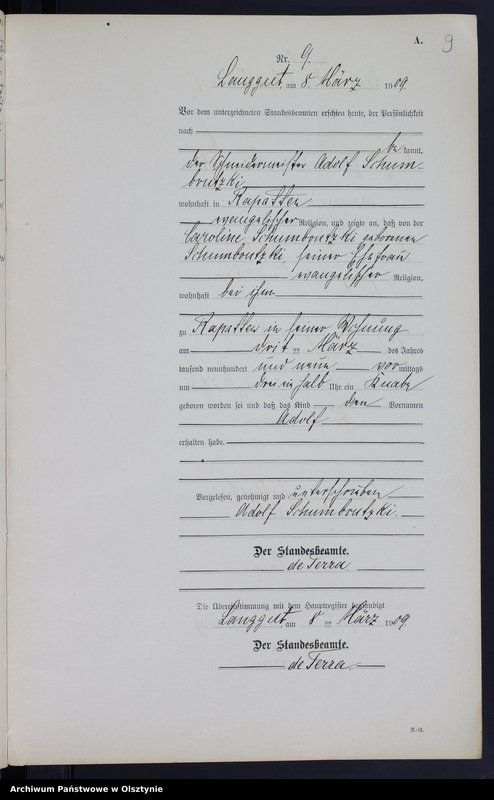 A.
9
Nr. 9.
Langgut, am 8. März 1909.
Vor dem unterzeichneten Standesbeamten erschien heute, der Persönlichkeit
nach
be kannt,
der Schneidermeister Adolf Schum-
boutzki
wohnhaft in Rapatten
evangelischer Religion, und zeigte an, daß von der
Caroline Schumboutzki geborenen
Schumboutzki, seiner Ehefrau
evangelischer Religion,
wohnhaft bei ihm
zu Rapatten in seiner Wohnung
am März des Jahres
tausend neunhundert und neun vor mittags
um Uhr ein Knabe
geboren worden sei und daß das Kind den Vornamen
Adolf
erhalten habe.
Vorgelesen, genehmigt und unterschrieben
Adolf Schumboutzki.
Der Standesbeamte.
de Terra
Die Übereinstimmung mit dem Hauptregister beglaubigt
Langgut, am 8 ten März 1909
Der Standesbeamte.
de Terra
Archiwum Państwowe w Olsztynie